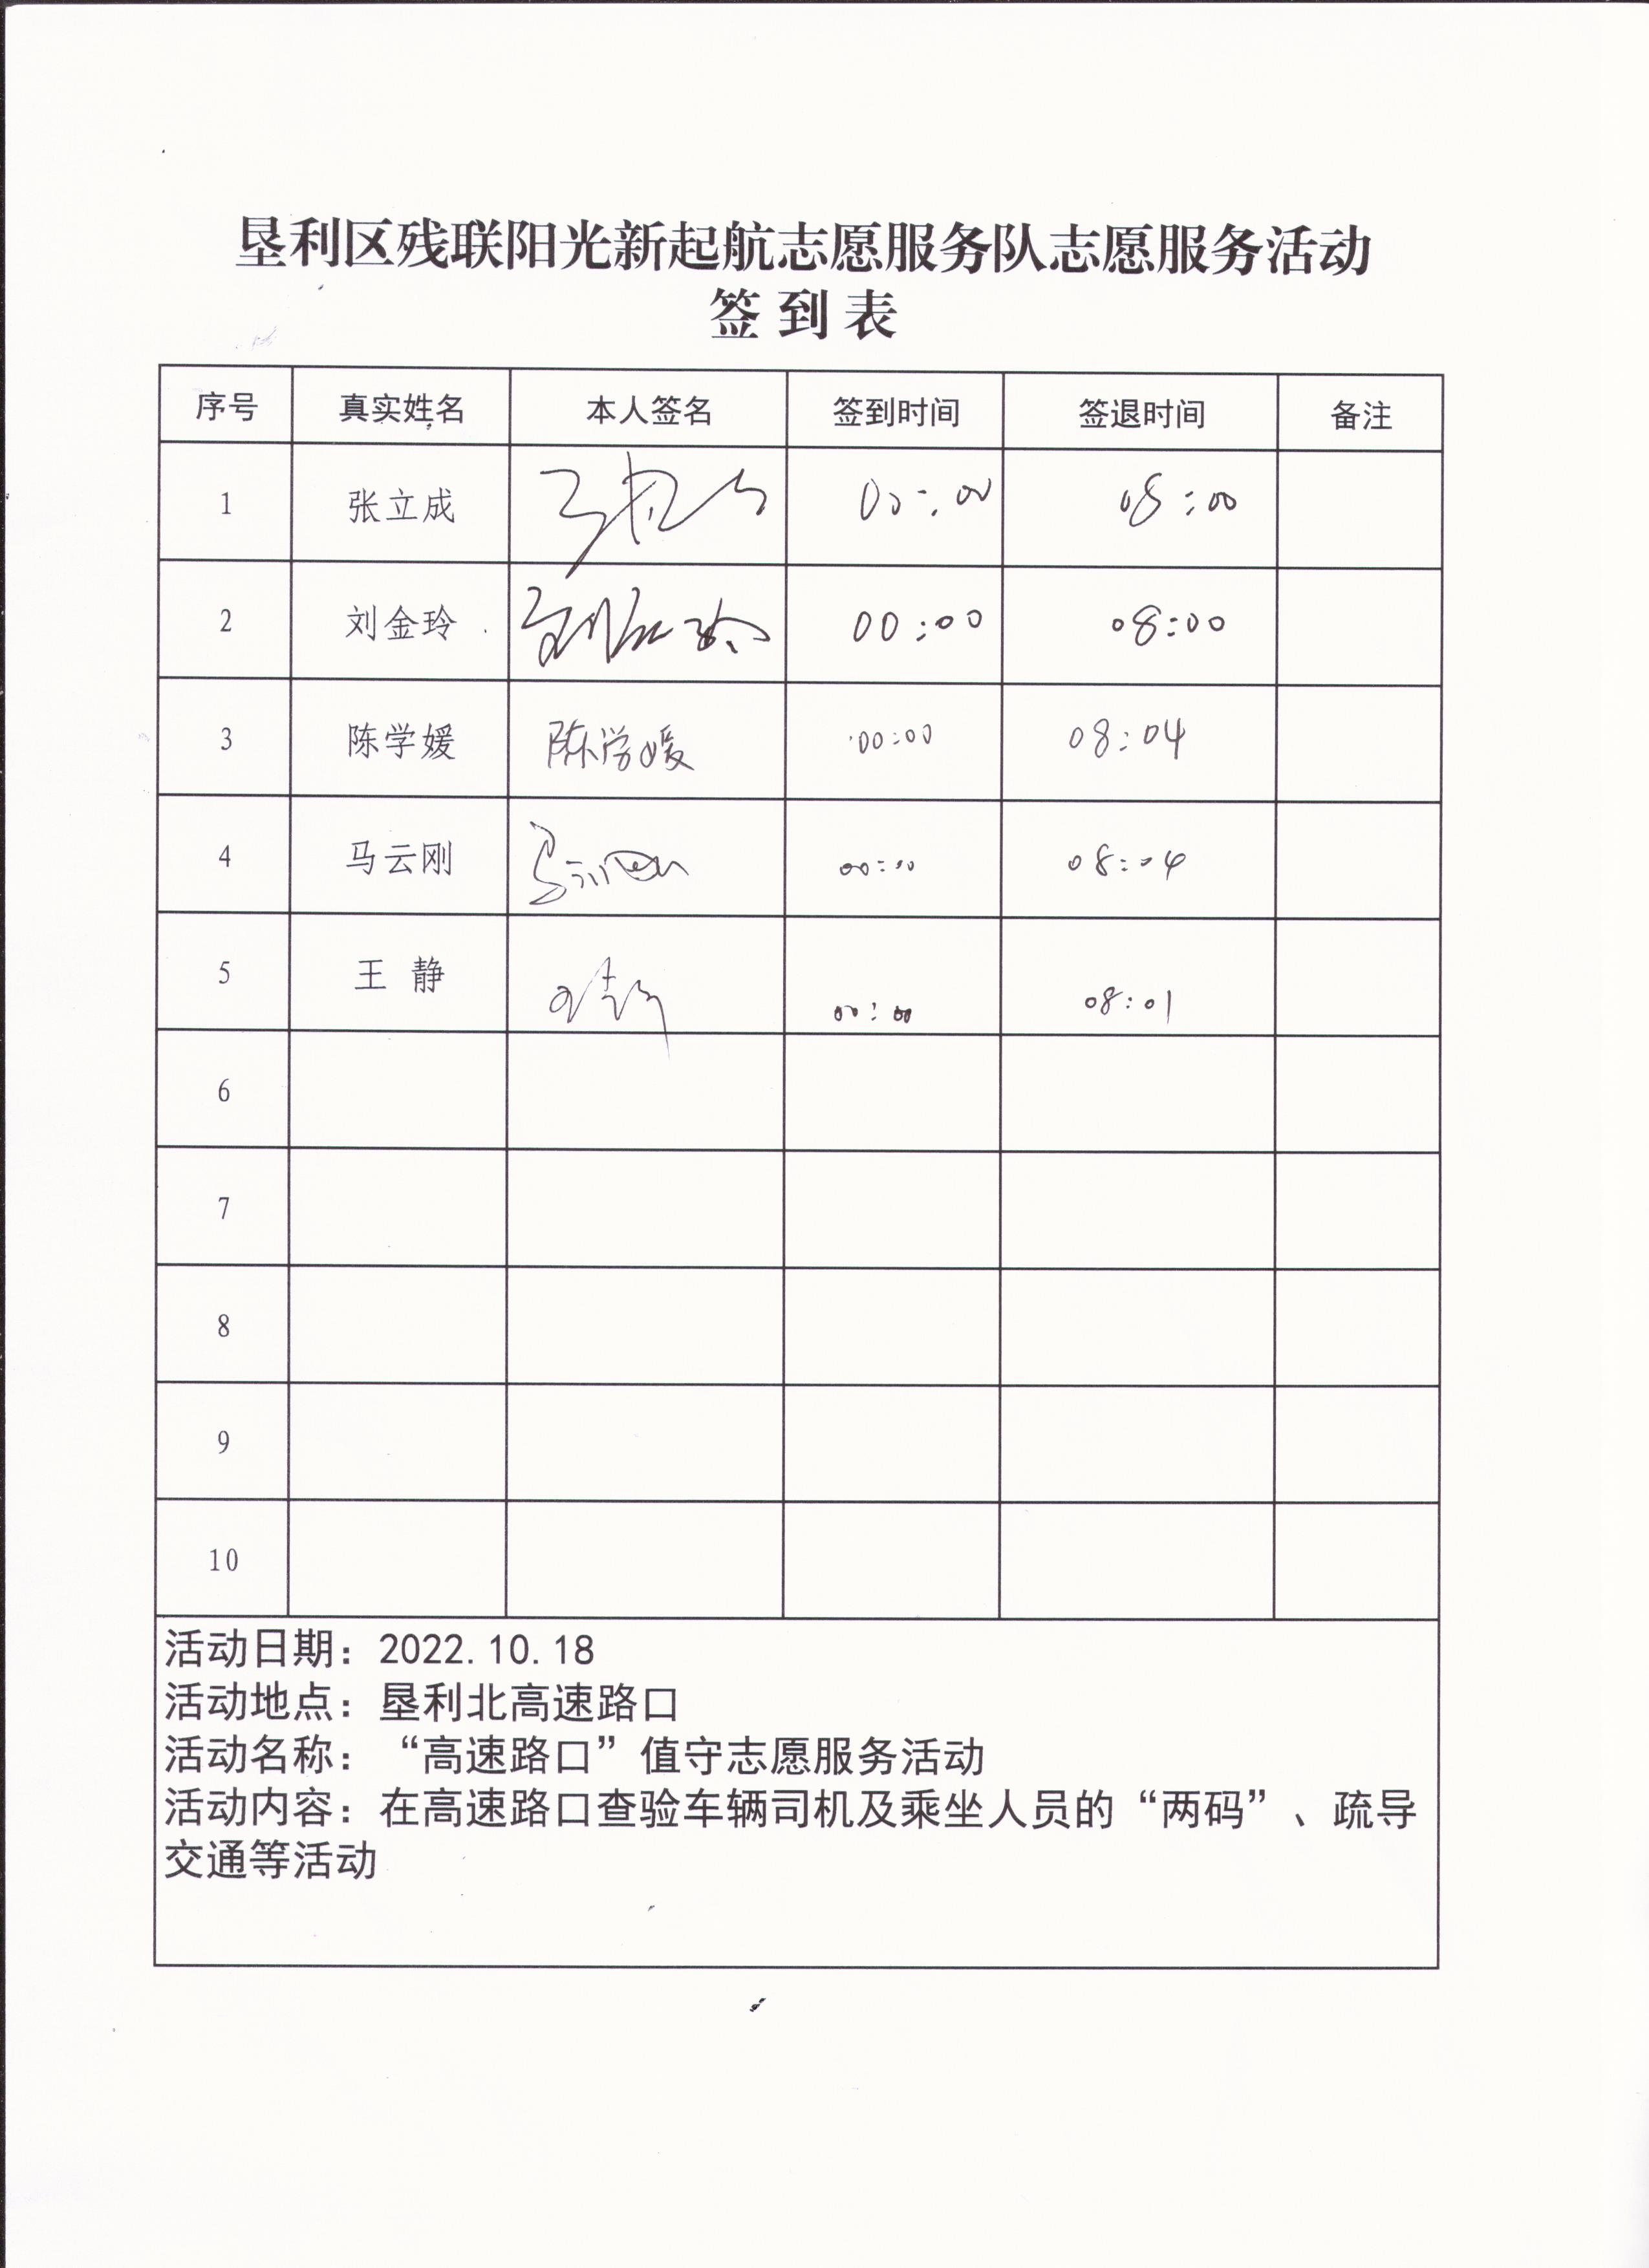 垦利区残联阳光新起航志愿服务队志愿服务活动
签到表
序号 真实姓名 本人签名 签到时间 签退时间 备注
1 张立成 00:00 08:00
2 刘金玲 刘金玲 00:00 08:00
3 陈学媛 陈学媛 00:00 08:04
4 马云刚 00:00 08:04
5 王静 00:00 08:01
6
7
8
9
10
活动日期：2022.10.18
活动地点：垦利北高速路口
活动名称：“高速路口”值守志愿服务活动
活动内容：在高速路口查验车辆司机及乘坐人员的“两码”、疏导
交通等活动